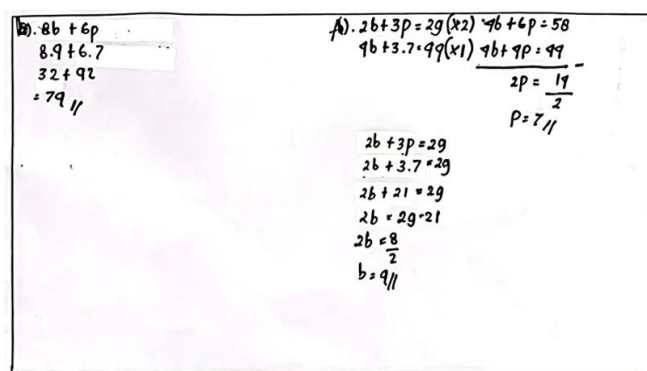 B). 8b + 6p
8.4+6.7
32+42
=74 //
A). 2b+3p=29(×2) 4b+6p=58
4b+3.7=44(×1) 4b+4p=44 -
2p = 14/2
P=7//
2b+3p=29
2b+3.7=29
2b+21=29
2b=29-21
2b=8/2
b=4//